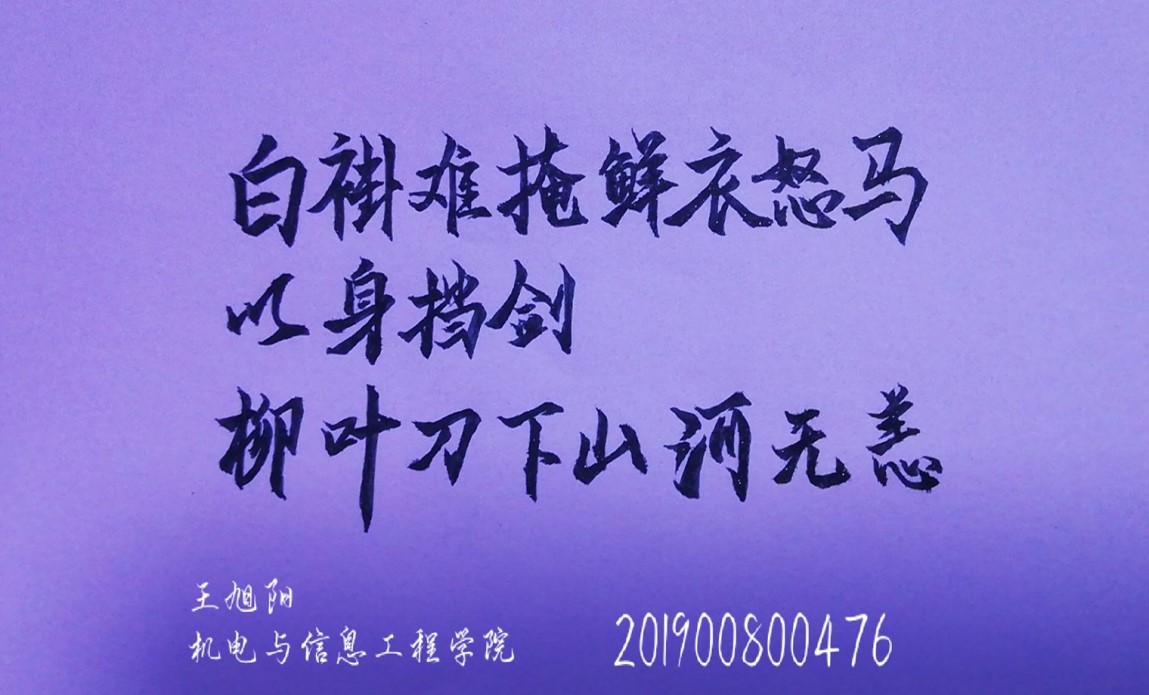 白褂难掩鲜衣怒马
以身挡剑
柳叶刀下山河无恙
王旭阳
机电与信息工程学院 201900800476